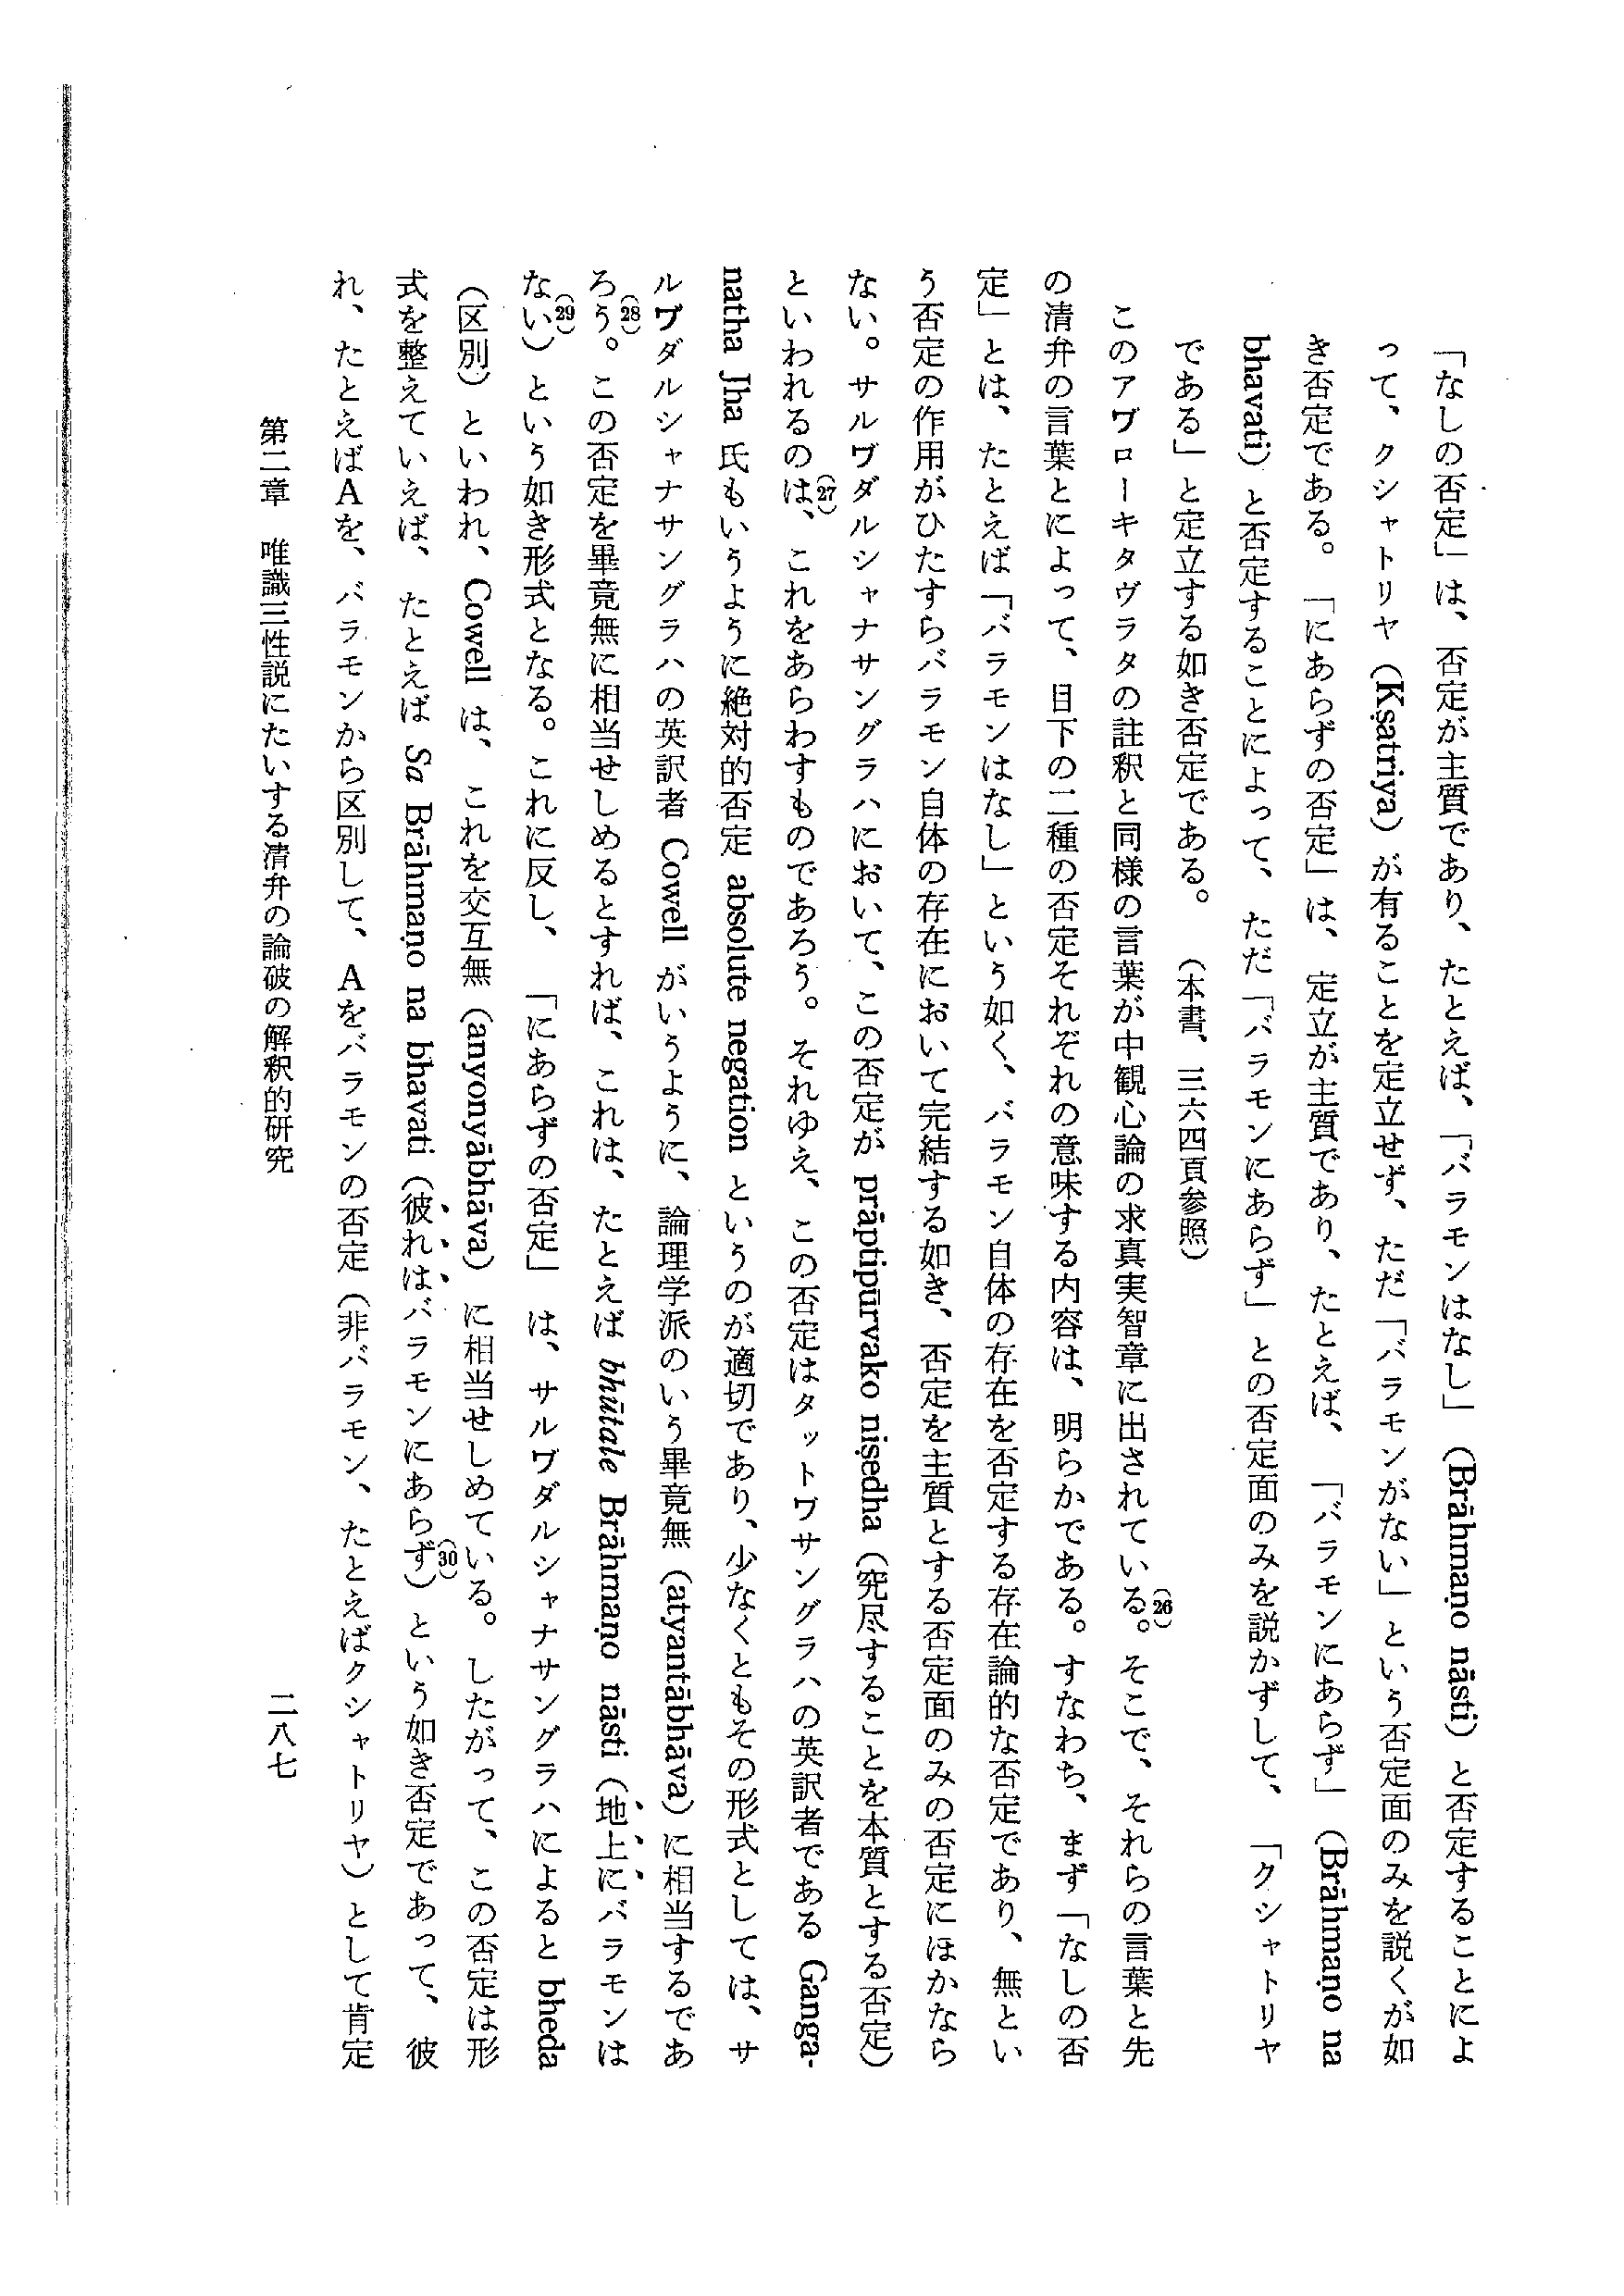 「なしの否定」は、否定が主質であり、たとえば、「バラモンはなし」(Brāhmaṇo nāsti)と否定することによ
って、クシャトリヤ(Kṣatriya)が有ることを定立せず、ただ「バラモンがない」という否定面のみを説くが如
き否定である。「にあらずの否定」は、定立が主質であり、たとえば、「バラモンにあらず」(Brāhmaṇo na
bhavati)と否定することによって、ただ「バラモンにあらず」との否定面のみを説かずして、「クシャトリヤ
である」と定立する如き否定である。(本書、三六四頁参照)
このアヷローキタヴラタの註釈と同様の言葉が中観心論の求真実智章に出されている。(26)そこで、それらの言葉と先
の清弁の言葉とによって、目下の二種の否定それぞれの意味する内容は、明らかである。すなわち、まず「なしの否
定」とは、たとえば「バラモンはなし」という如く、バラモン自体の存在を否定する存在論的な否定であり、無とい
う否定の作用がひたすらバラモン自体の存在において完結する如き、否定を主質とする否定面のみの否定にほかなら
ない。サルヷダルシャナサングラハにおいて、この否定が prāptipūrvako niṣedha(究尽することを本質とする否定)
といわれるのは、(27)これをあらわすものであろう。それゆえ、この否定はタットヷサングラハの英訳者である Ganga-
natha Jha 氏もいうように絶対的否定 absolute negation というのが適切であり、少なくともその形式としては、サ
ルヷダルシャナサングラハの英訳者 Cowell がいうように、論理学派のいう畢竟無(atyantābhāva)に相当するであ
ろう。(28)この否定を畢竟無に相当せしめるとすれば、これは、たとえば bhūtale Brāhmaṇo nāsti(地上にバラモンは
ない)(29)という如き形式となる。これに反し、「にあらずの否定」は、サルヷダルシャナサングラハによると bheda
(区別)といわれ、Cowell は、これを交互無(anyonyābhāva)に相当せしめている。したがって、この否定は形
式を整えていえば、たとえば Sa Brāhmaṇo na bhavati(彼れはバラモンにあらず)(30)という如き否定であって、彼
れ、たとえばAを、バラモンから区別して、Aをバラモンの否定(非バラモン、たとえばクシャトリヤ)として肯定
第二章 唯識三性説にたいする清弁の論破の解釈的研究
二八七